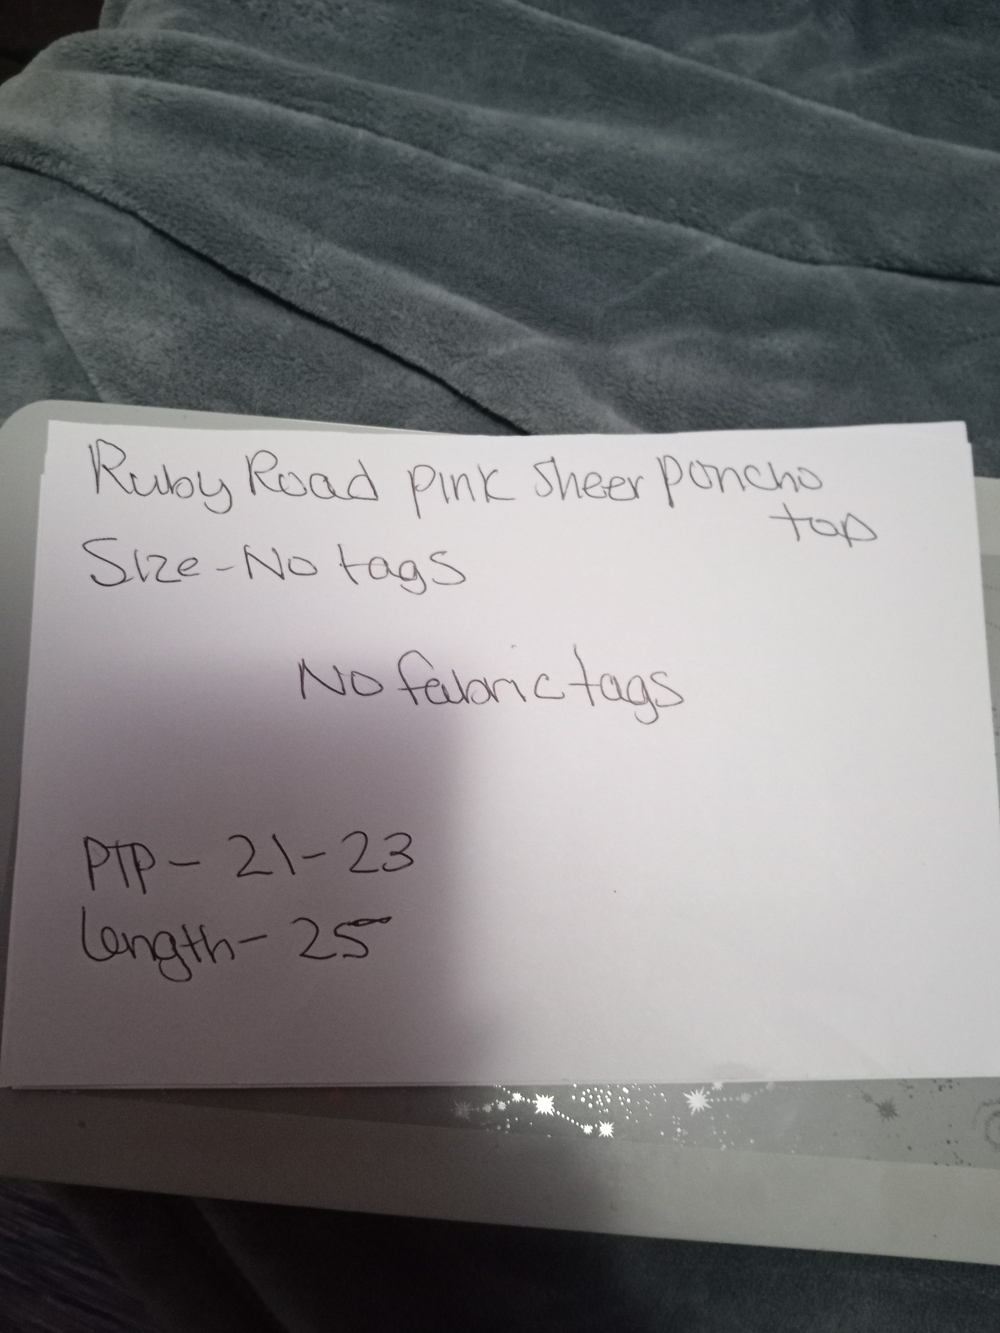 Ruby Road pink sheer poncho
top
Size - No tags
No fabric tags
PTP - 21 - 23
Length - 25